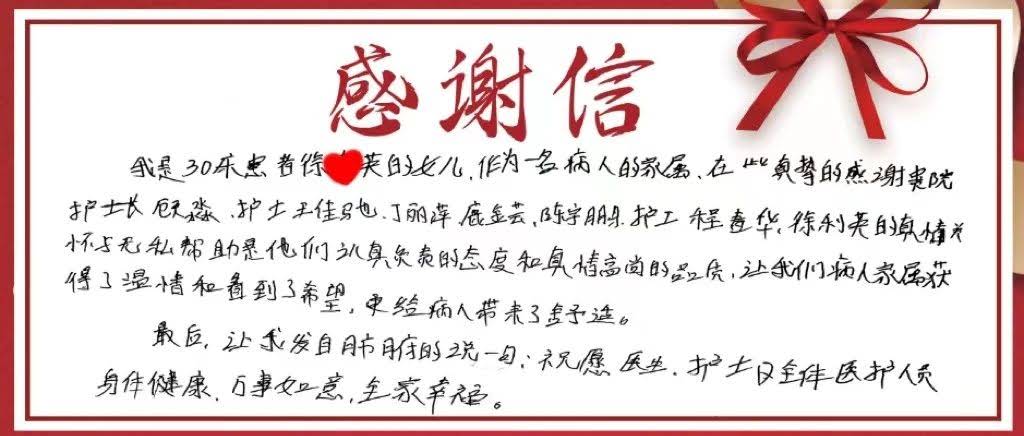 感谢信
我是30床患者徐英的女儿,作为一名病人的家属,在此真挚的感谢贵院
护士长顾淼、护士王佳驰、丁丽萍,陈宇鹏,护工程莲华,徐利英的真情关
怀与无私帮助是他们认真负责的态度和真情高尚的品质,让我们病人家属获
得了温情和看到了希望,更给病人带来了舒适。
最后,让我发自肺腑的说一句:祝愿医生、护士及全体医护人员
身体健康,万事如意,全家幸福。